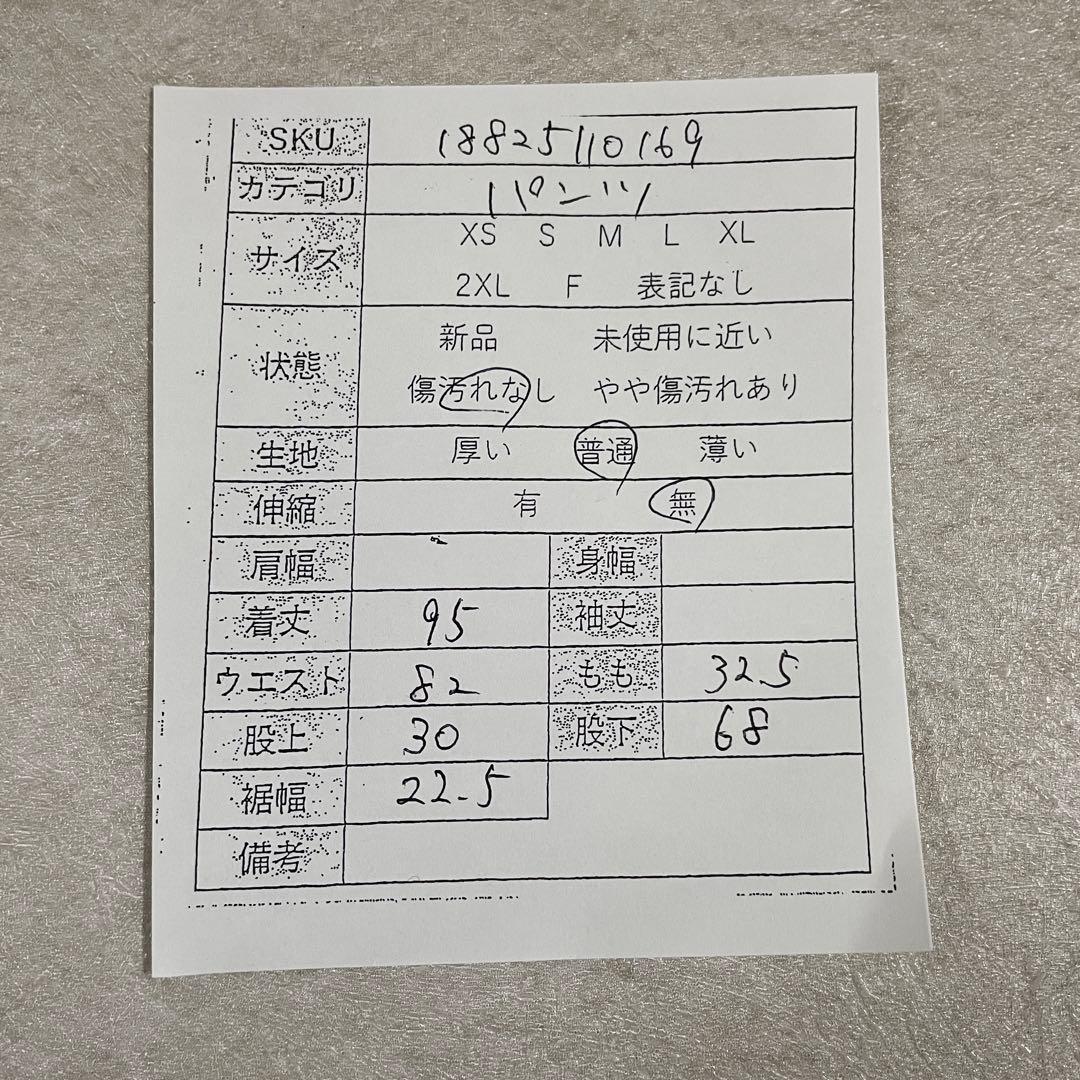 SKU 18825110169
カテゴリ パンツ
サイズ XS S M L XL
2XL F 表記なし
状態 新品 未使用に近い
傷汚れなし やや傷汚れあり
生地 厚い 普通 薄い
伸縮 有 無
肩幅 身幅
着丈 95 袖丈
ウエスト 82 もも 32.5
股上 30 股下 68
裾幅 22.5
備考